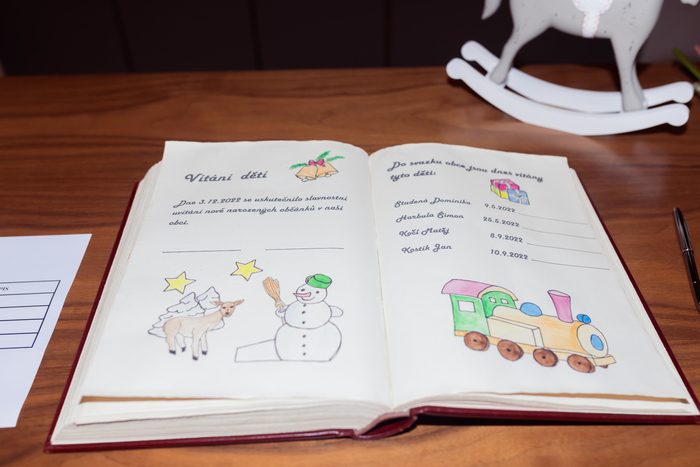 Vítání dětí
Dne 3.12.2022 se uskutečnilo slavnostní
uvítání nově narozených občánků v naší
obci.
Do svazku obce jsou dnes vítány
tyto děti:
Studená Dominika 9.5.2022
Harbula Šimon 25.5.2022
Kočí Matěj 8.9.2022
Kostik Jan 10.9.2022